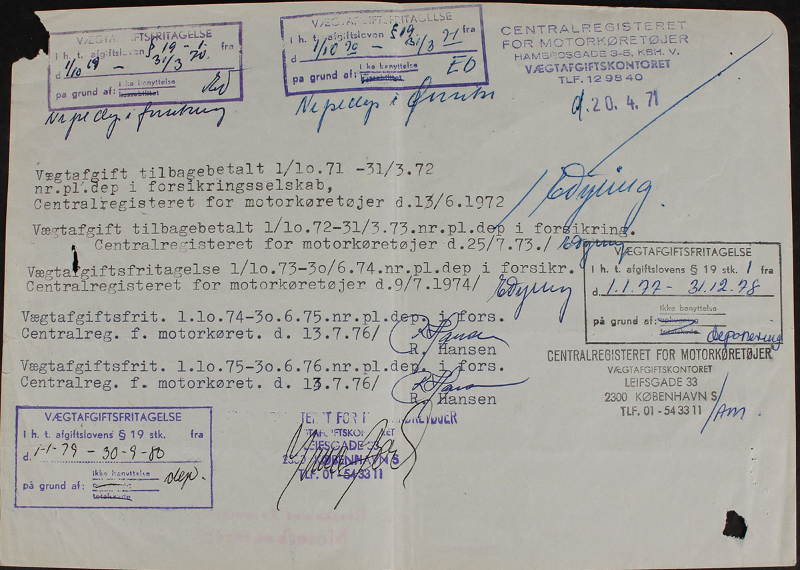 VÆGTAFGIFTSFRITAGELSE
I h. t. afgiftsloven § 19 - 1. fra
d. 1/10 69 - 31/3 70.
ikke benyttelse
på grund af: ED
Nr pl dep i forsikring
VÆGTAFGIFTSFRITAGELSE
I h. t. afgiftsloven § 19 fra
d. 1/10 70 - 31/3 71
ikke benyttelse
på grund af: ED
Nr pl dep i
CENTRALREGISTERET
FOR MOTORKØRETØJER
HAMBROSGADE 3-5, KBH. V.
VÆGTAFGIFTSKONTORET
TLF. 12 98 40
d. 20. 4. 71
Vægtafgift tilbagebetalt 1/1o.71 -31/3.72
nr.pl.dep i forsikringsselskab,
Centralregisteret for motorkøretøjer d.13/6.1972
Vægtafgift tilbagebetalt 1/1o.72-31/3.73.nr.pl.dep i forsikring.
Centralregisteret for motorkøretøjer d.25/7.73./
Vægtafgiftsfritagelse 1/1o.73-3o/6.74.nr.pl.dep i forsikr.
Centralregisteret for motorkøretøjer d.9/7.1974/
VÆGTAFGIFTSFRITAGELSE
I h. t. afgiftslovens § 19 stk. 1 fra
d. 1.1.77 - 31.12.78
ikke benyttelse
på grund af: deponering
CENTRALREGISTERET FOR MOTORKØRETØJER
VÆGTAFGIFTSKONTORET
LEIFSGADE 33
2300 KØBENHAVN S
TLF. 01 - 54 33 11
Vægtafgiftsfrit. 1.1o.74-3o.6.75.nr.pl.dep. i fors.
Centralreg. f. motorkøret. d. 13.7.76/
R. Hansen
Vægtafgiftsfrit. 1.1o.75-3o.6.76.nr.pl.dep. i fors.
Centralreg. f. motorkøret. d. 13.7.76/
R. Hansen
VÆGTAFGIFTSFRITAGELSE
I h. t. afgiftslovens § 19 stk. fra
d. 1-1-79 - 30-9-80
ikke benyttelse
på grund af: dep.
totalskade
LEIFSGADE 33
2300 KØBENHAVN S
TLF. 01 - 54 33 11